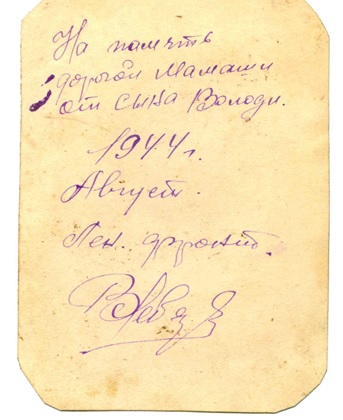 На память
дорогой Мамаши
от сына Володи.
1944 г.
Август.
Лен. фронт.